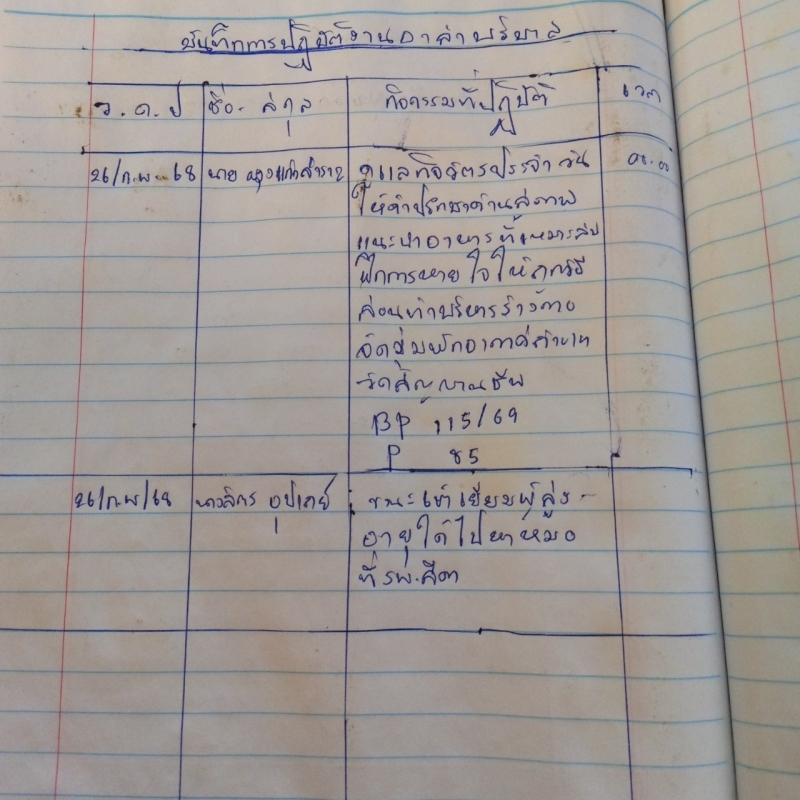 บันทึกการปฏิบัติงานอาสาบริบาล
ว.ด.ป ชื่อ. สกุล กิจกรรมที่ปฏิบัติ เวลา
26/ก.พ. 68 นาย ดูแลกิจวัตรประจำวัน
ให้คำปรึกษาด้านสุขภาพ
แนะนำอาหารที่เหมาะสม
ฝึกการหายใจให้ถูกวิธี
สอนทำบริหารร่างกาย
วัดสัญญาณชีพ
BP 115/69
P 85
26/ก.พ/68 ขณะเข้าเยี่ยมผู้สูง-
อายุได้ไปหาหมอ
ที่รพ.สีดา